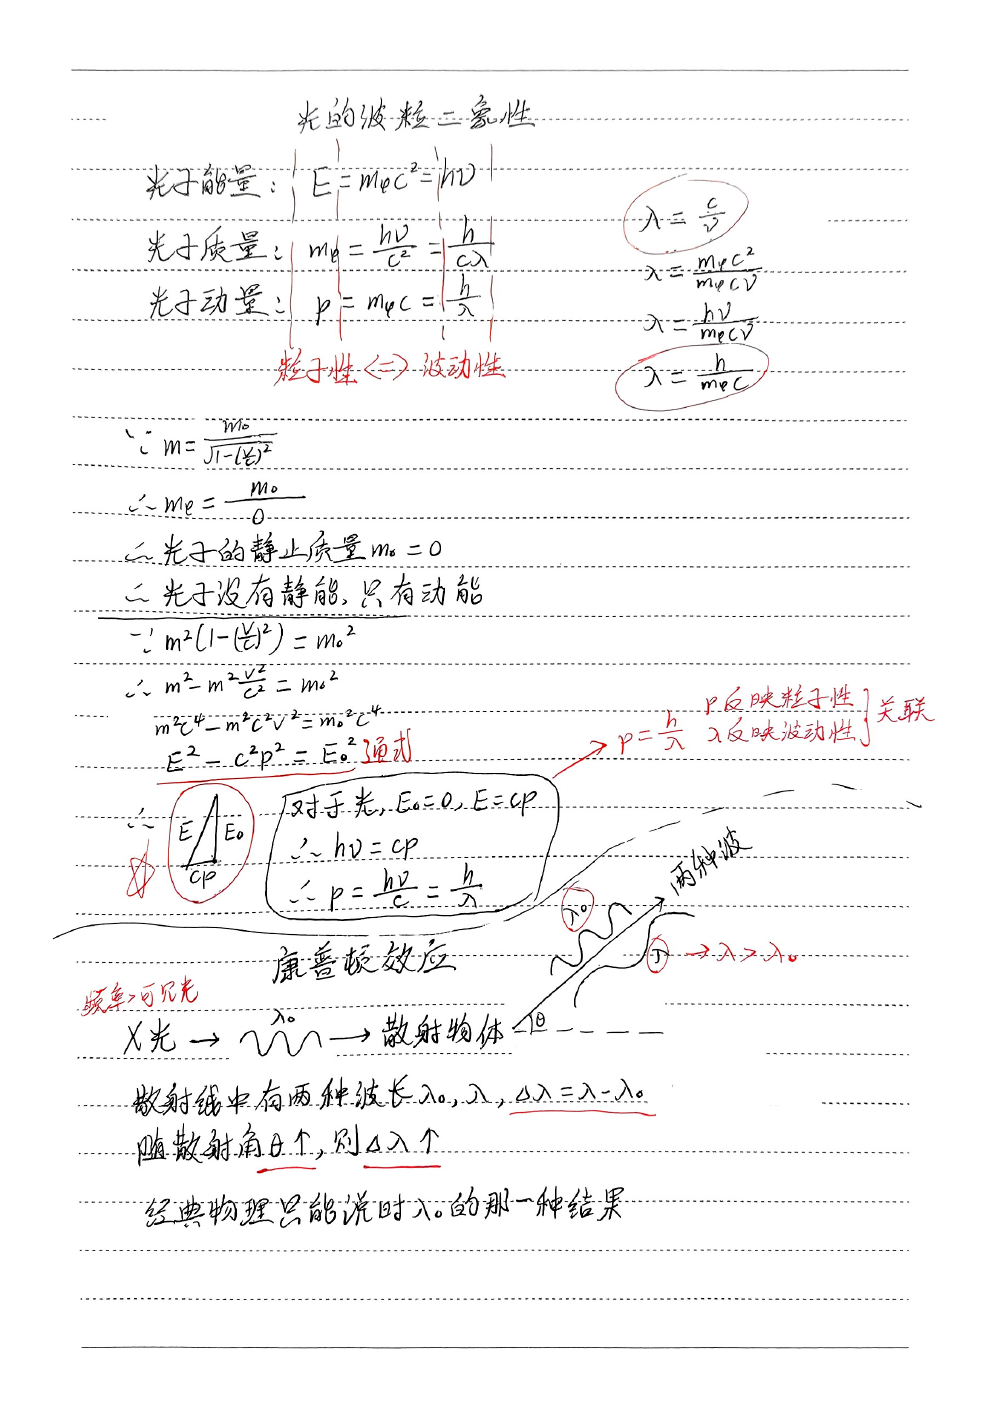 光的波粒二象性
光子能量: E = mφc² = hν
光子质量: mφ = hν/c² = h/cλ
光子动量: p = mφc = h/λ
粒子性 <=> 波动性
λ = c/ν
λ = mφc²/mφcν
λ = hν/mφcν
λ = h/mφc
∵ m = m₀/√1-(v/c)²
∴ mφ = m₀/0
∴ 光子的静止质量 m₀ = 0
∴ 光子没有静能, 只有动能
∵ m²(1-(v/c)²) = m₀²
∴ m² - m² v²/c² = m₀²
m²c⁴ - m²c²v² = m₀²c⁴
E² - c²p² = E₀² 通式
p = h/λ p反映粒子性 λ反映波动性 } 关联
∴ E E₀ cp
对于光, E₀=0, E=cp
∴ hν = cp
∴ p = hν/c = h/λ
两种波
λ₀
λ → λ > λ₀
康普顿效应
频率>可见光
X光 → λ₀ → 散射物体 θ
散射线中有两种波长λ₀, λ, Δλ = λ - λ₀
随散射角θ↑, 则Δλ↑
经典物理只能说时λ₀的那一种结果